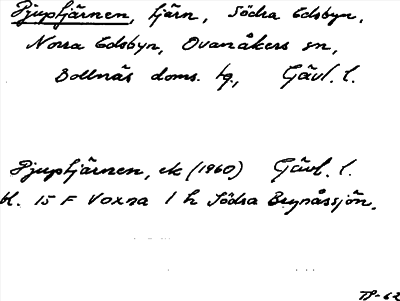 Djuptjärnen, tjärn, Södra Edsbyn,
Norra Edsbyn, Ovanåkers sn,
Bollnäs doms. tg., Gävl. l.
Djuptjärnen, ek (1960) Gävl. l.
bl. 15 F Voxna 1 h Södra Brynåssjön.
TP-62